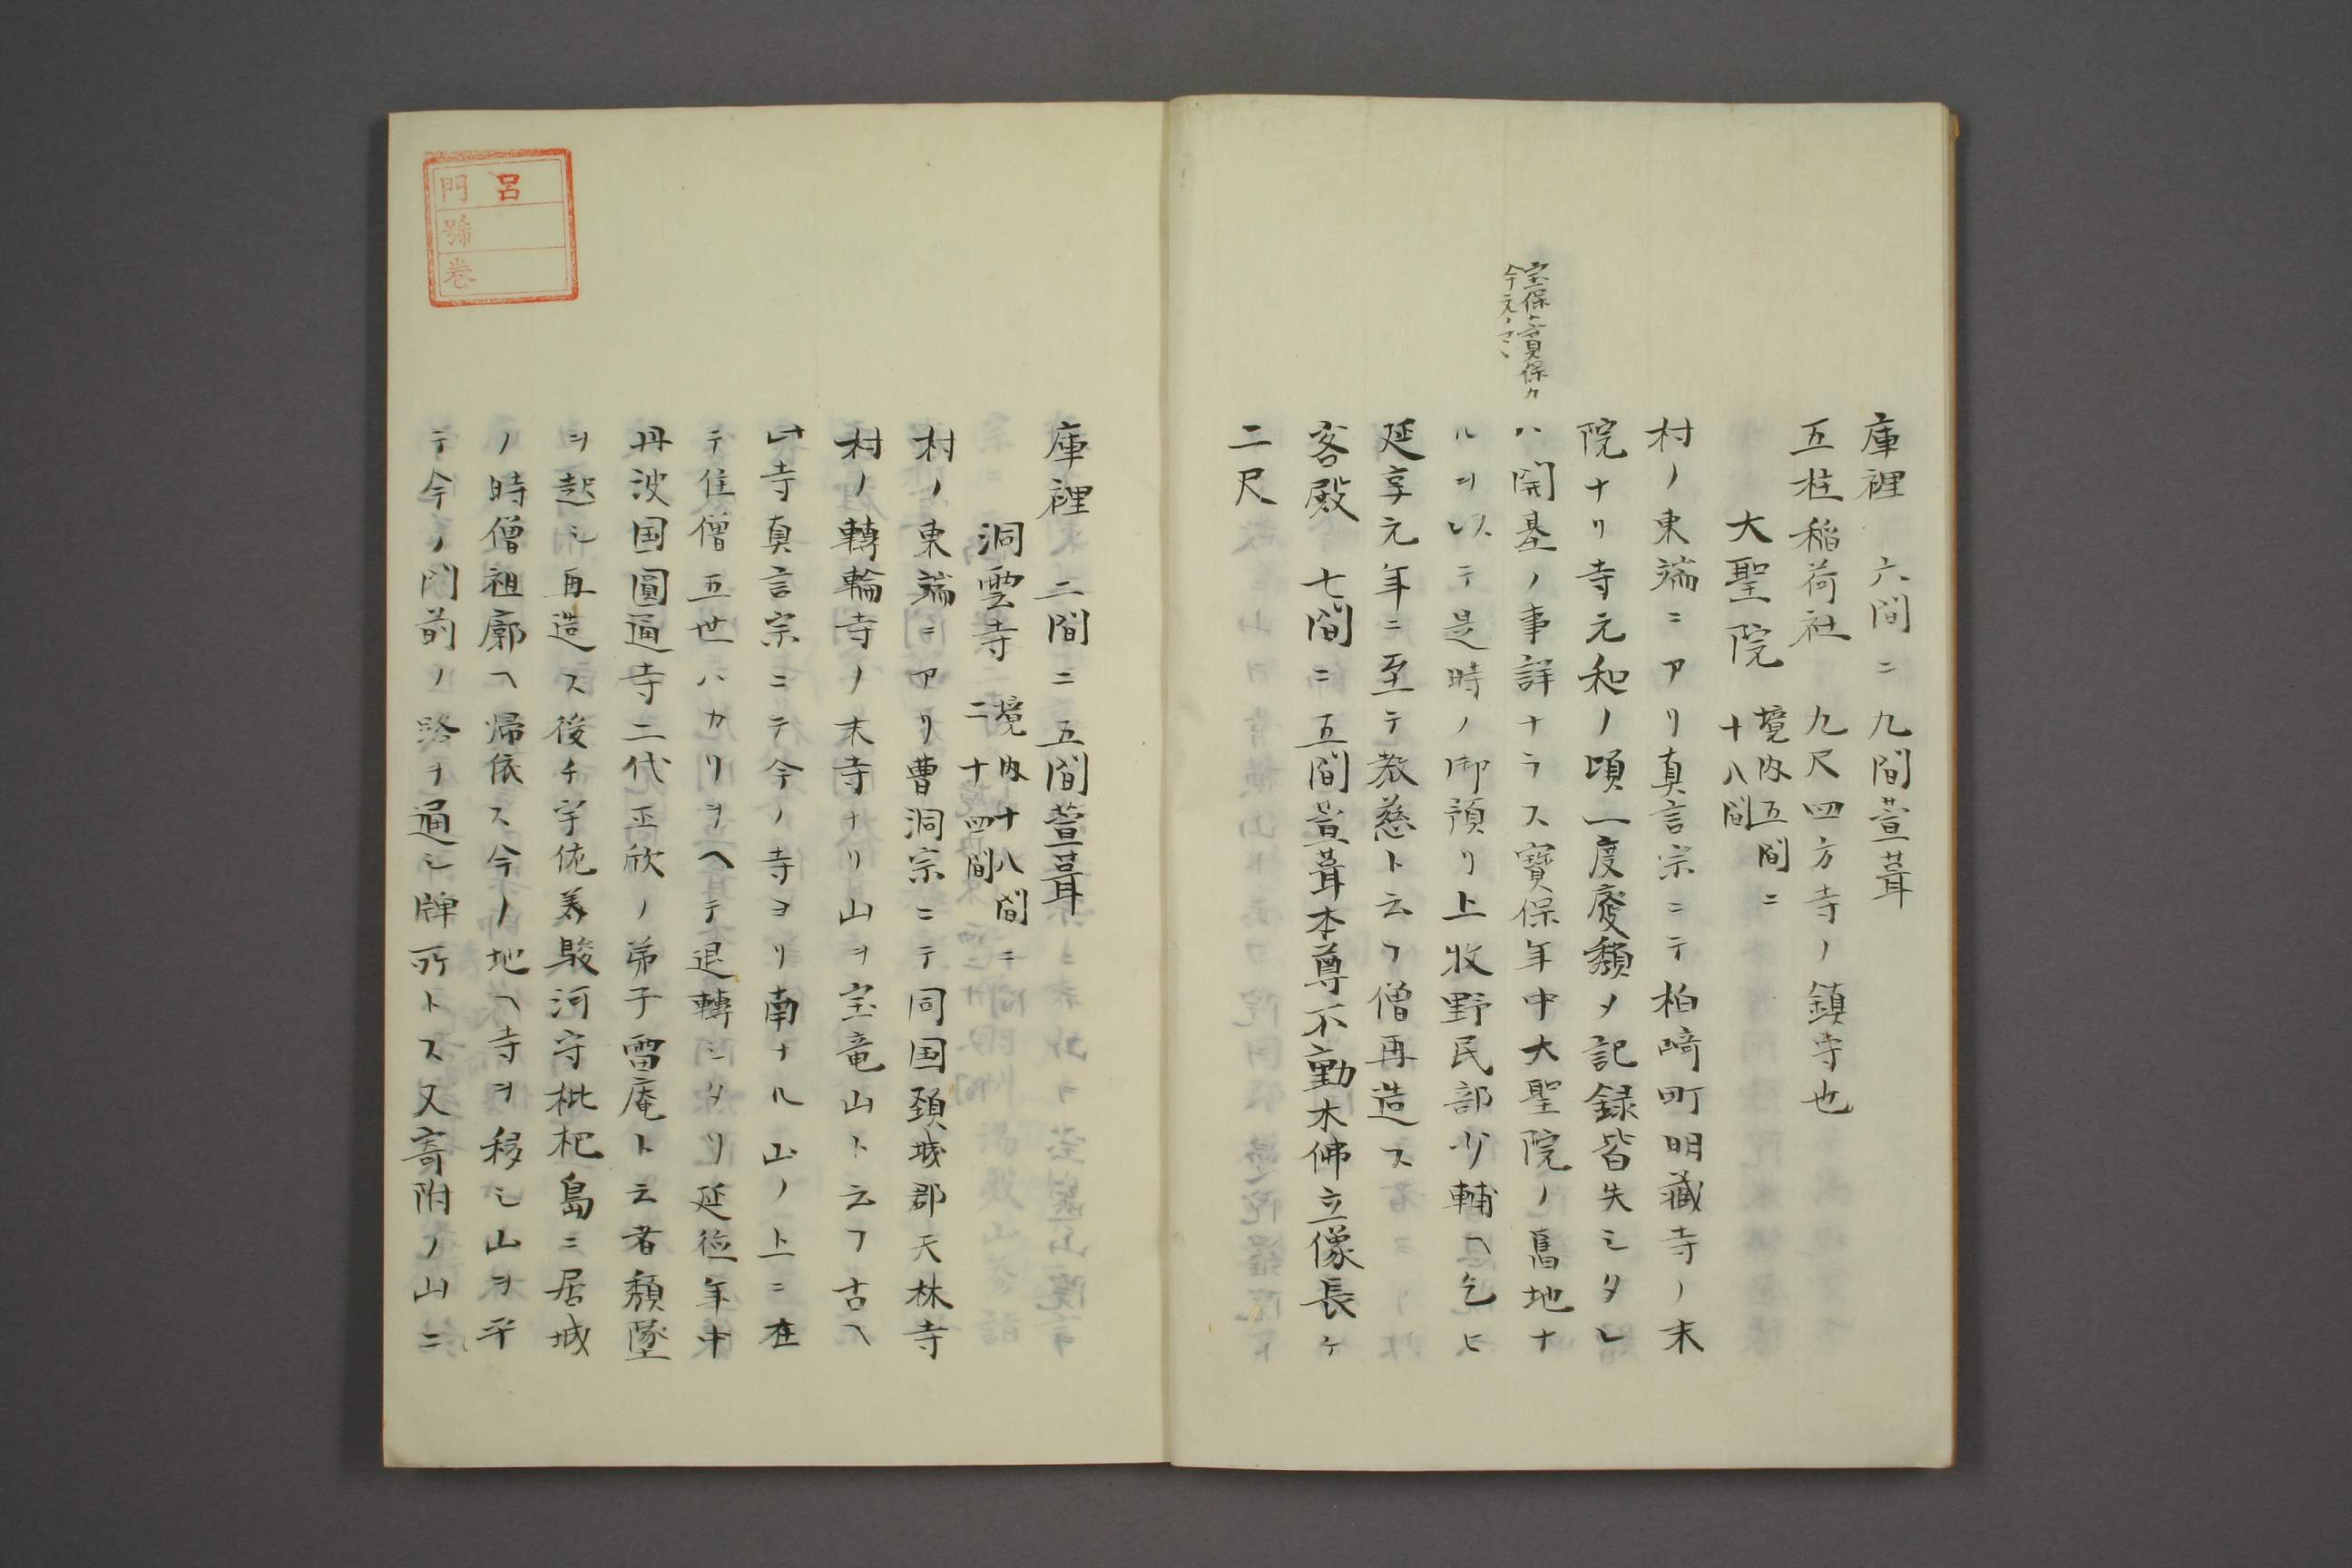 庫裡　六間ニ九間萱葺
五柱稲荷社　九尺四方寺ノ鎮守也
大聖院　境内五間ニ
十八間
村ノ東端ニアリ真言宗ニテ柏﨑町明藏寺ノ末
院ナリ寺元和ノ頃一度廢頽メ記録皆失シタレ
ハ開基ノ事詳ナラス寶保年中大聖院ノ舊地ナ
ルヲ以テ是時ノ御預リ上牧野民部少輔ヘ乞ヒ
延享元年ニ至テ教慈ト云フ僧再造ス
客殿　七間ニ五間萱葺本尊不動木佛立像長ケ
二尺
宝保ハ寛保カ
今元ノマヽ
庫裡　二間ニ五間萱葺
洞雲寺　境内十八間ニ
二十四間
村ノ東端ニアリ曹洞宗ニテ同国頚城郡天林寺
村ノ轉輪寺ノ末寺ナリ山ヲ宝竜山ト云フ古ヘ
此寺真言宗ニテ今ノ寺ヨリ南ナル山ノ上ニ在
テ住僧五世ハカリヲヘテ退轉シタリ延徳年中
丹波国圓通寺二代正欣ノ弟子雷庵ト云者頽墜
ヲ起シ再造ス後チ宇佐美駿河守枇杷島ニ居城
ノ時僧祖廓ヘ帰依ス今ノ地ヘ寺ヲ移シ山ヲ平
テ今ノ門前ノ路ヲ通シ牌所トス又寄附ノ山ニ
呂
門
號
巻